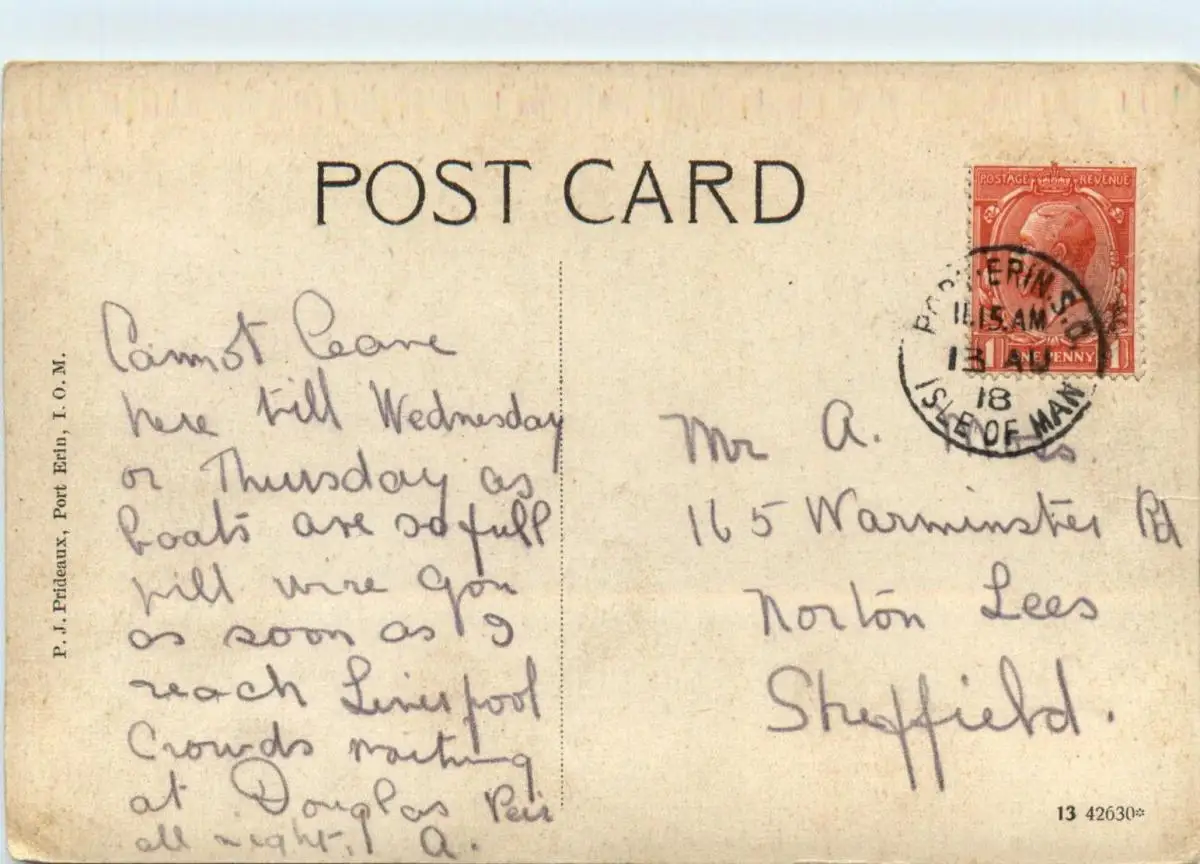 POST CARD
POSTAGE REVENUE
1 ONE PENNY 1
PORT-ERIN.S.O
11.15.AM
13 AU
18
ISLE OF MAN
Cannot leave
here till Wednesday
or Thursday as
boats are so full
will wire you
as soon as I
reach Liverpool
Crowds waiting
at Douglas Peir
all night. A.
Mr A.
165 Warminster Rd
Norton Lees
Sheffield.
P. J. Prideaux, Port Erin, I. O. M.
13 42630*